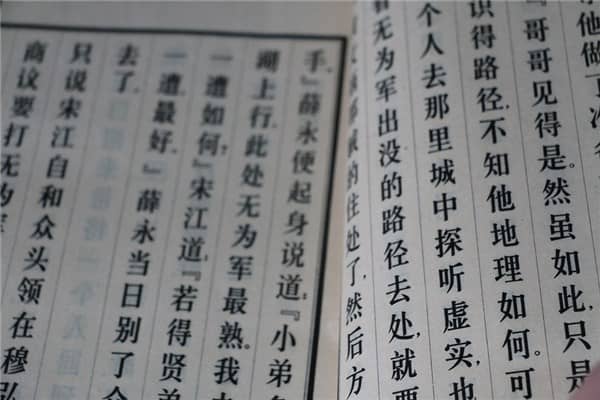 他做了
『哥哥见得是。然虽如此，只是
识得路径，不知他地理如何。可
个人去那里城中探听虚实，也
看无为军出没的路径去处，就要
的住处了，然后方
手。』薛永便起身说道：『小弟
湖上行，此处无为军最熟。我
一遭如何？』宋江道：『若得贤弟
一遭最好。』薛永当日别了
去了。
只说宋江自和众头领在穆弘
商议要打无为军